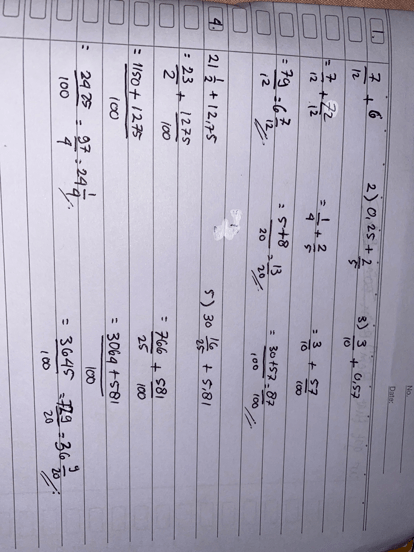 No.
Date:
1. 7/12 + 6
= 7/12 + 72/12
= 79/12 = 6 7/12
2) 0,25 + 2/5
= 1/4 + 2/5
= 5+8/20 = 13/20
3) 3/10 + 0,57
= 3/10 + 57/100
= 30+57/100 = 87/100
4. 21 1/2 + 12,75
= 23/2 + 1275/100
= 1150+1275/100
= 2425/100 = 97/4 = 24 1/4
5) 30 16/25 + 5,81
= 766/25 + 581/100
= 3064+581/100
= 3645/100 = 729/20 = 36 9/20